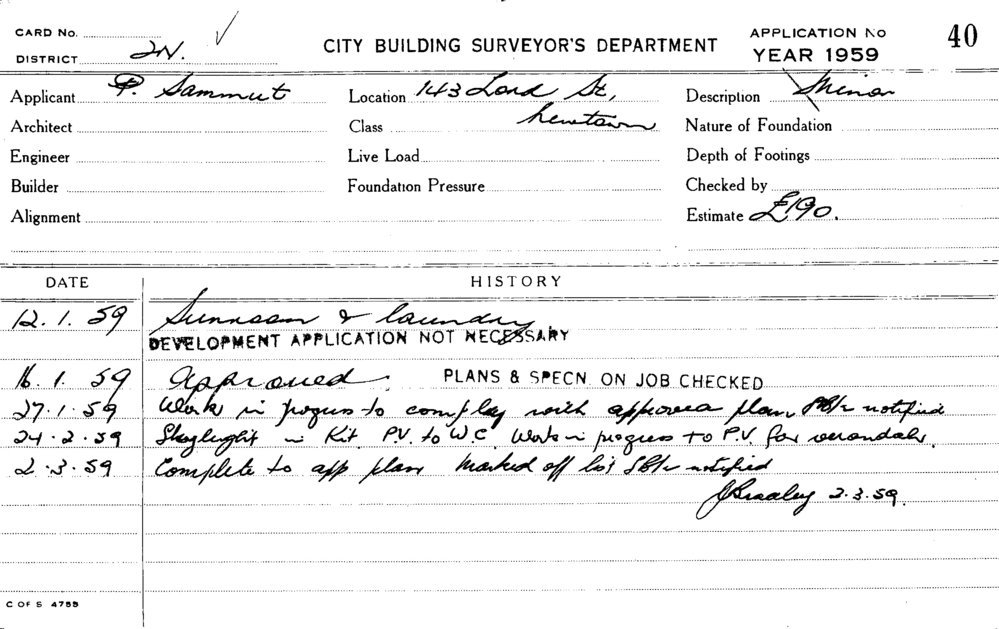 CARD No.
DISTRICT 2N.
CITY BUILDING SURVEYOR'S DEPARTMENT
APPLICATION No 40
YEAR 1959
Applicant P. Sammut
Location 143 Lord St, Newtown
Description Minor
Architect
Class
Nature of Foundation
Engineer
Live Load
Depth of Footings
Builder
Foundation Pressure
Checked by
Alignment
Estimate £190.
DATE HISTORY
12.1.59 Sunroom & laundry
DEVELOPMENT APPLICATION NOT NECESSARY
16.1.59 Approved. PLANS & SPECN. ON JOB CHECKED
27.1.59 Work in progress to comply with approved plan notified
24.2.59 Skylight in Kit P.V. to W.C. Work in progress to P.V. for verandah.
2.3.59 Complete to app plan marked off notified
2.3.59.
C OF S 4759